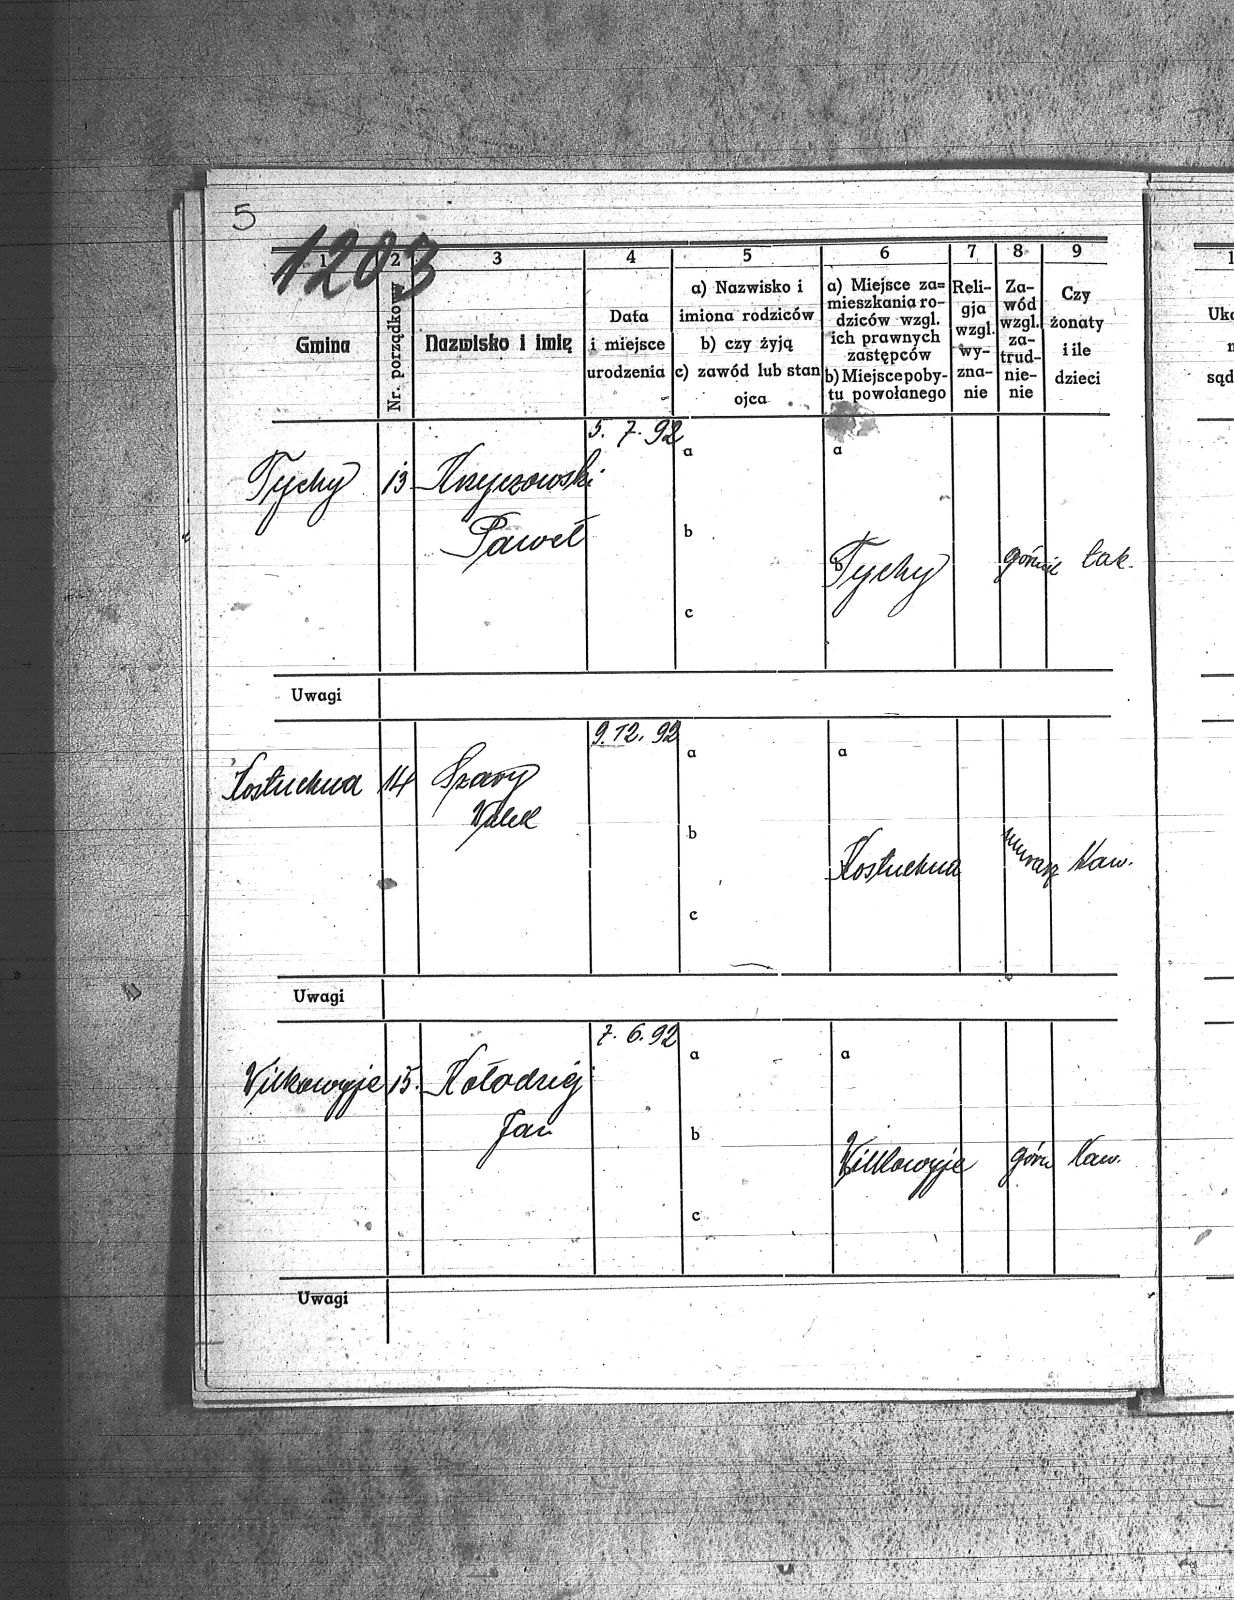 5
1203
1
2
3
4
5
6
7
8
9
Gmina
Nr. porządkow
Nazwisko i imię
Data
i miejsce
urodzenia
a) Nazwisko i
imiona rodziców
b) czy żyją
c) zawód lub stan
ojca
a) Miejsce za=
mieszkania ro-
dziców wzgl.
ich prawnych
zastępców
b) Miejsce poby-
tu powołanego
Reli-
gja
wzgl.
wy-
zna-
nie
Za-
wód
wzgl.
za-
trud-
nie-
nie
Czy
żonaty
i ile
dzieci
5. 7. 92
Tychy 13 Krzyczowski a a
Paweł b
b Tychy górnik tak.
c
Uwagi
9. 12. 92
Kostuchna 14 Szary a a
b
Kostuchna murarz kaw.
c
Uwagi
7. 6. 92
Wilkowyje 15. Kołodziej a a
Jan b
Wilkowyje górn kaw.
c
Uwagi
1
sąd